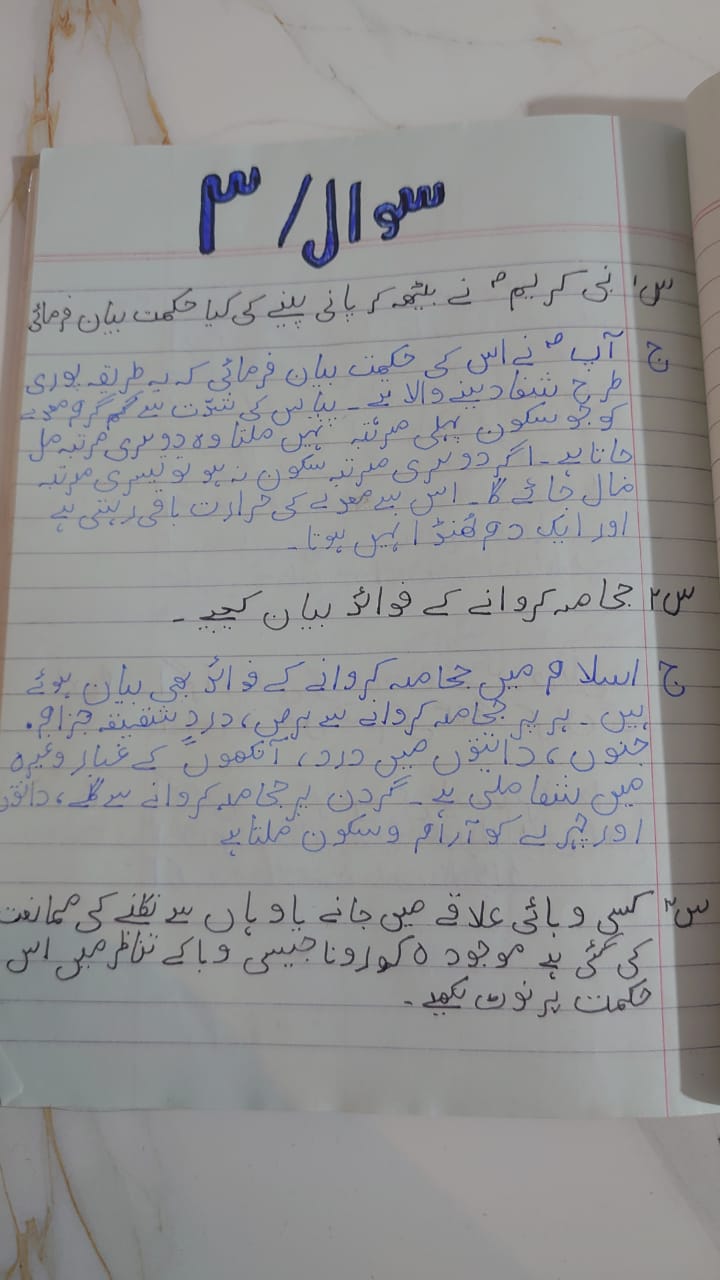 سوال/۳
س۱ نبی کریم ؐ نے بیٹھ کر پانی پینے کی کیا حکمت بیان فرمائی
ج آپ ؐ نے اس کی حکمت بیان فرمائی کہ یہ طریقہ پوری
طرح شفا دینے والا ہے۔ پیاس کی شدت سے گرم معدے
کو جو سکون پہلی مرتبہ نہیں ملتا وہ دوسری مرتبہ مل
جاتا ہے۔ اگر دوسری مرتبہ سکون نہ ہو تو تیسری مرتبہ
جائے گا۔ اس سے معدے کی حرارت باقی رہتی ہے
اور ایک دم ٹھنڈا نہیں ہوتا۔
س۲ حجامہ کروانے کے فوائد بیان کیجیے۔
ج اسلام میں حجامہ کروانے کے فوائد بھی بیان ہوئے
ہیں۔ پر حجامہ کروانے سے برص، درد شقیقہ جزام،
جنوں، دانتوں میں درد، آنکھوں کے غبار وغیرہ
میں شفا ملی ہے۔ گردن پر حجامہ کروانے سے گلے، دانتوں
اور چہرے کو آرام و سکون ملتا ہے
س۳ کسی وبائی علاقے میں جانے یا وہاں سے نکلنے کی ممانعت
کی گئی ہے موجودہ کورونا جیسی وبا کے تناظر میں اس
حکمت پر نوٹ لکھیے۔